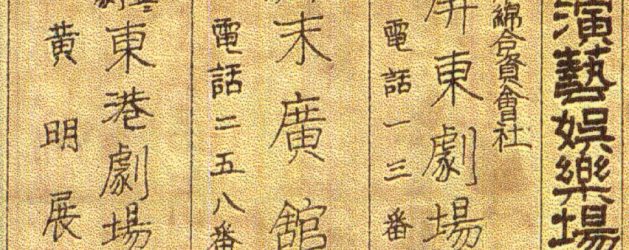 演藝娯樂場
綿合資會社
屏東劇場
電話一三番
末廣館
電話二五八番
東港劇場
黄明展